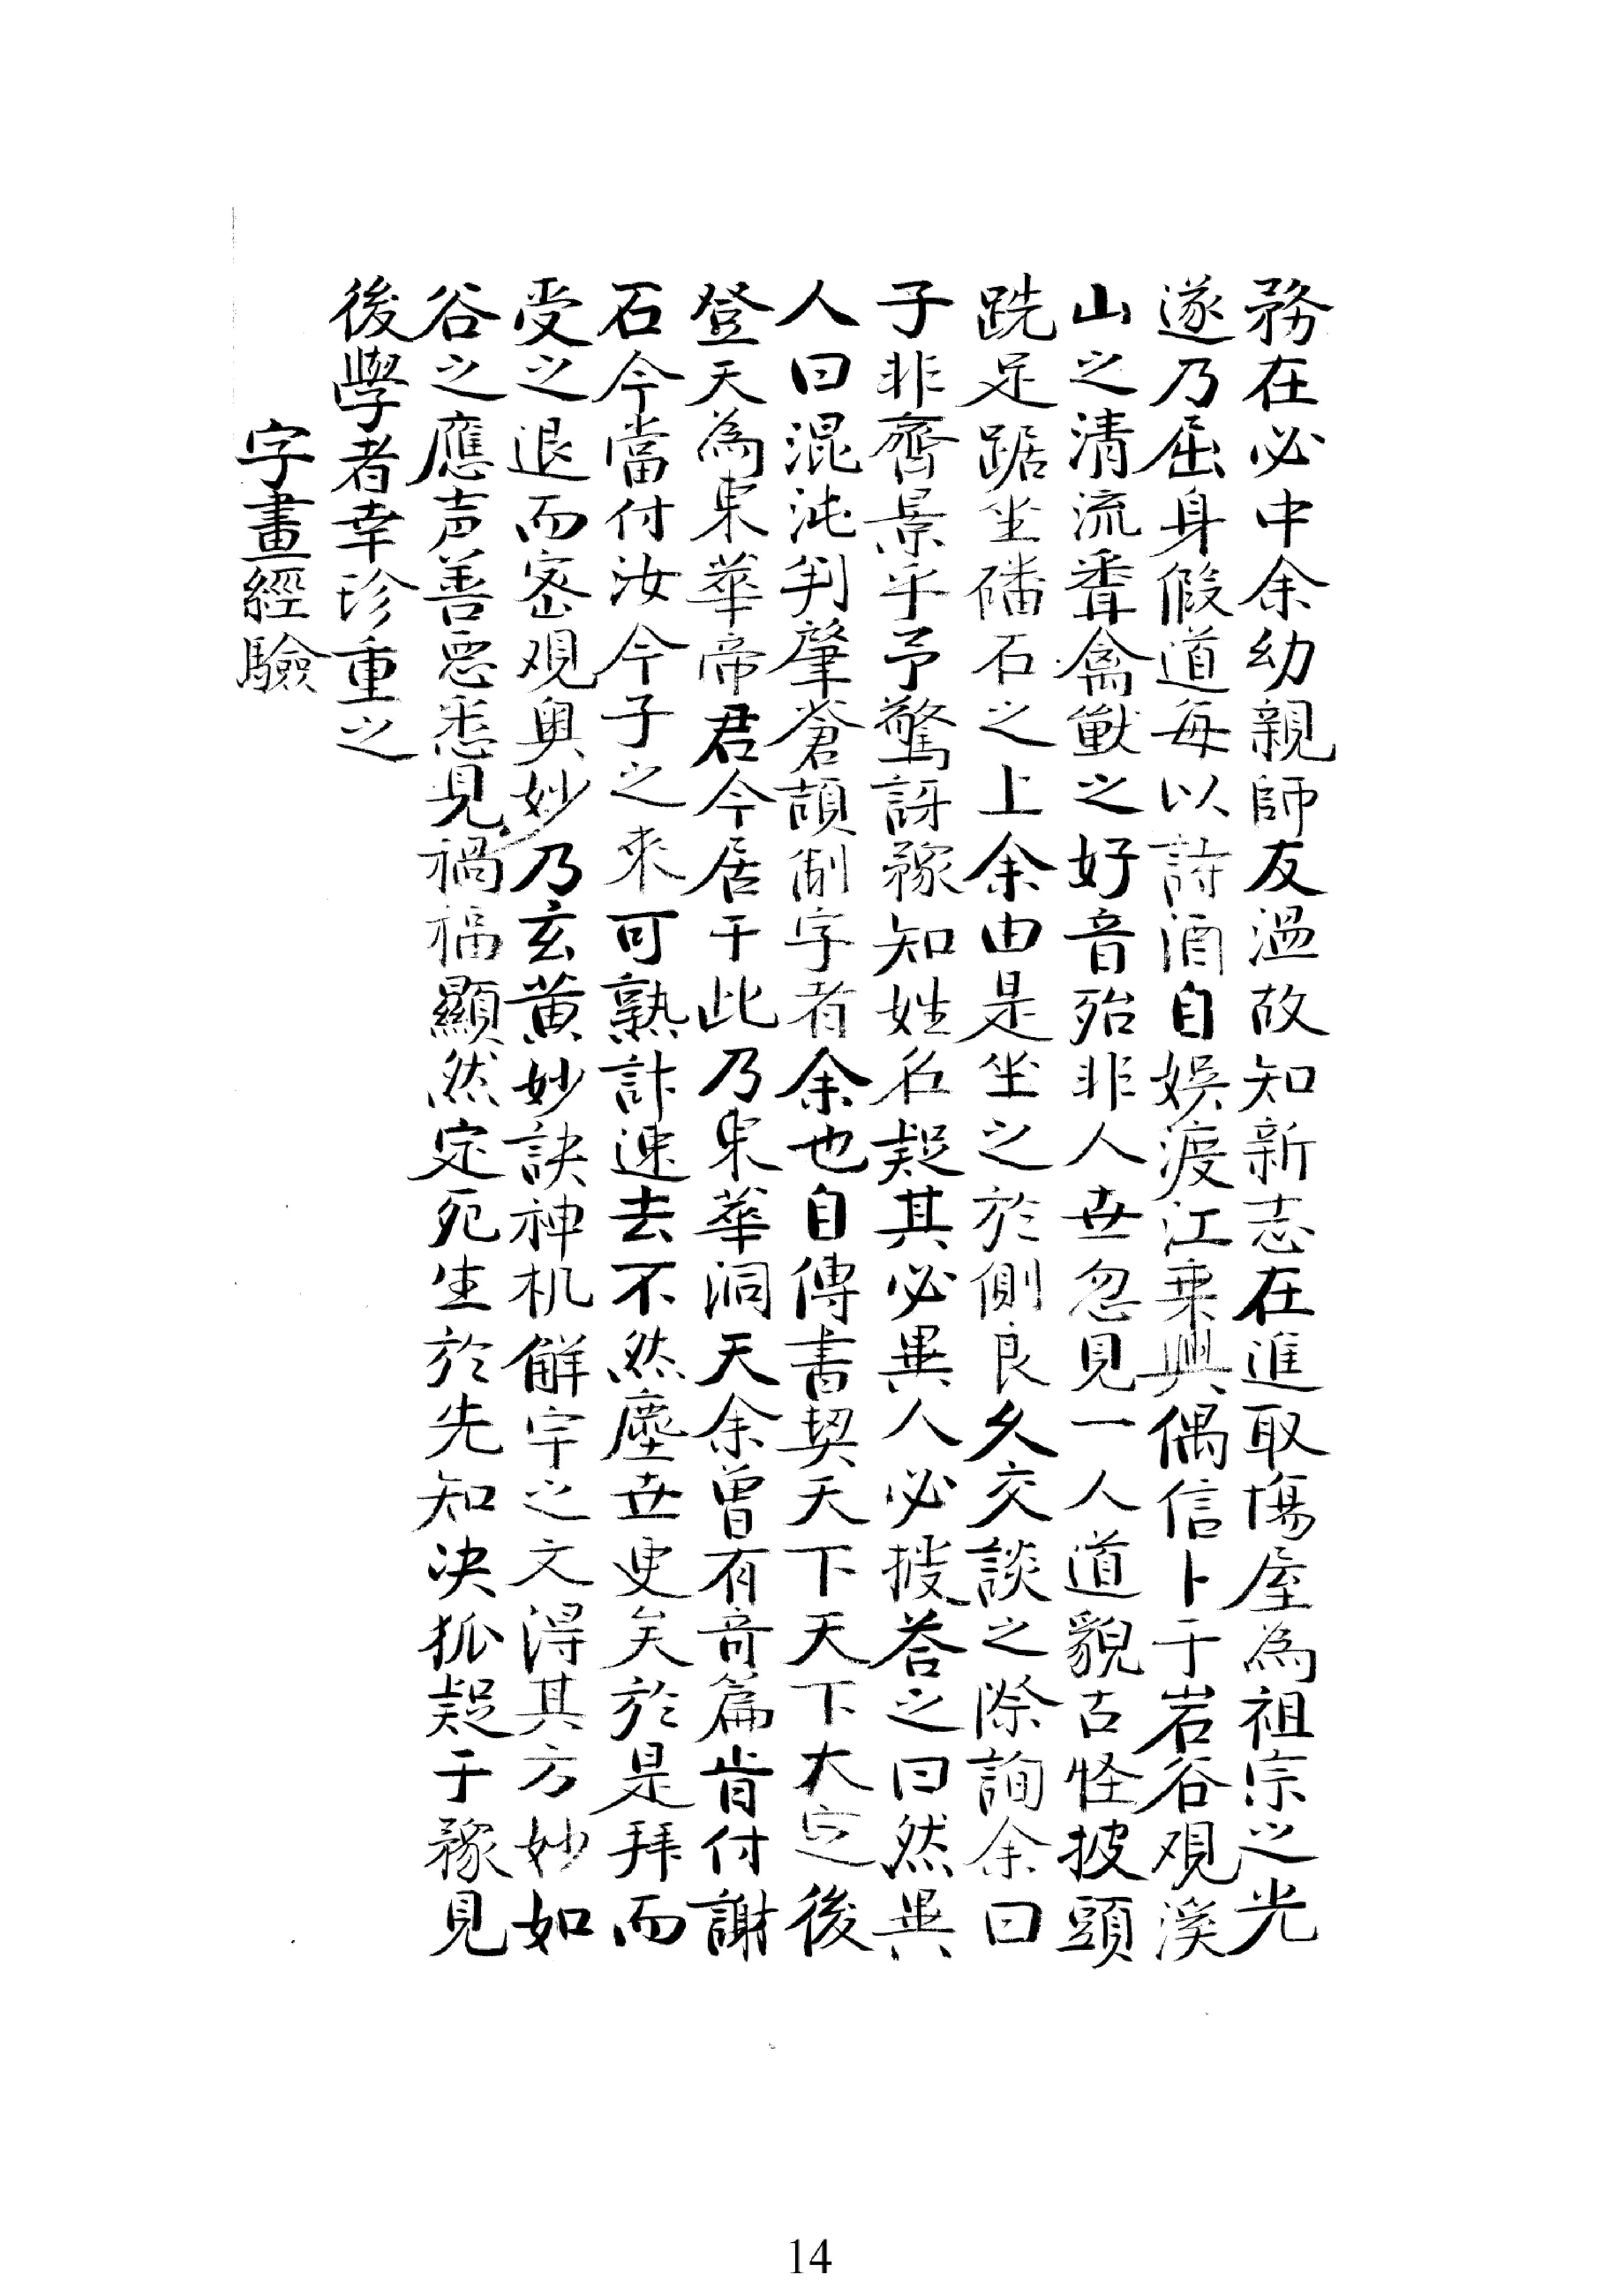 務在必中余幼親師友温故知新志在進取傷屋為祖宗之光
遂乃屈身假道每以詩酒自娛渡江乗興偶信卜于岩谷观溪
山之清流聋禽獣之好音殆非人世忽見一人道貌古怪披頭
跣足踞坐磻石之上余由是坐之於側良久交談之際詢余曰
子非齊景乎予驚訝豫知姓名疑其必異人必披荅之曰然異
人曰混沌判肇蒼頡制字者余也自傳書契天下天下大定後
登天為東華帝君今居于此乃東華洞天余曾有竒篇肯付謝
石今當付汝今子之來可熟計速去不然塵世更矣於是拜而
受之退而密观奥妙乃玄黄妙訣神机解字之文得其方妙如
谷之應声善惡悉見禍福顯然定死生於先知决狐疑于豫見
後學者幸珍重之
字畫經驗
14